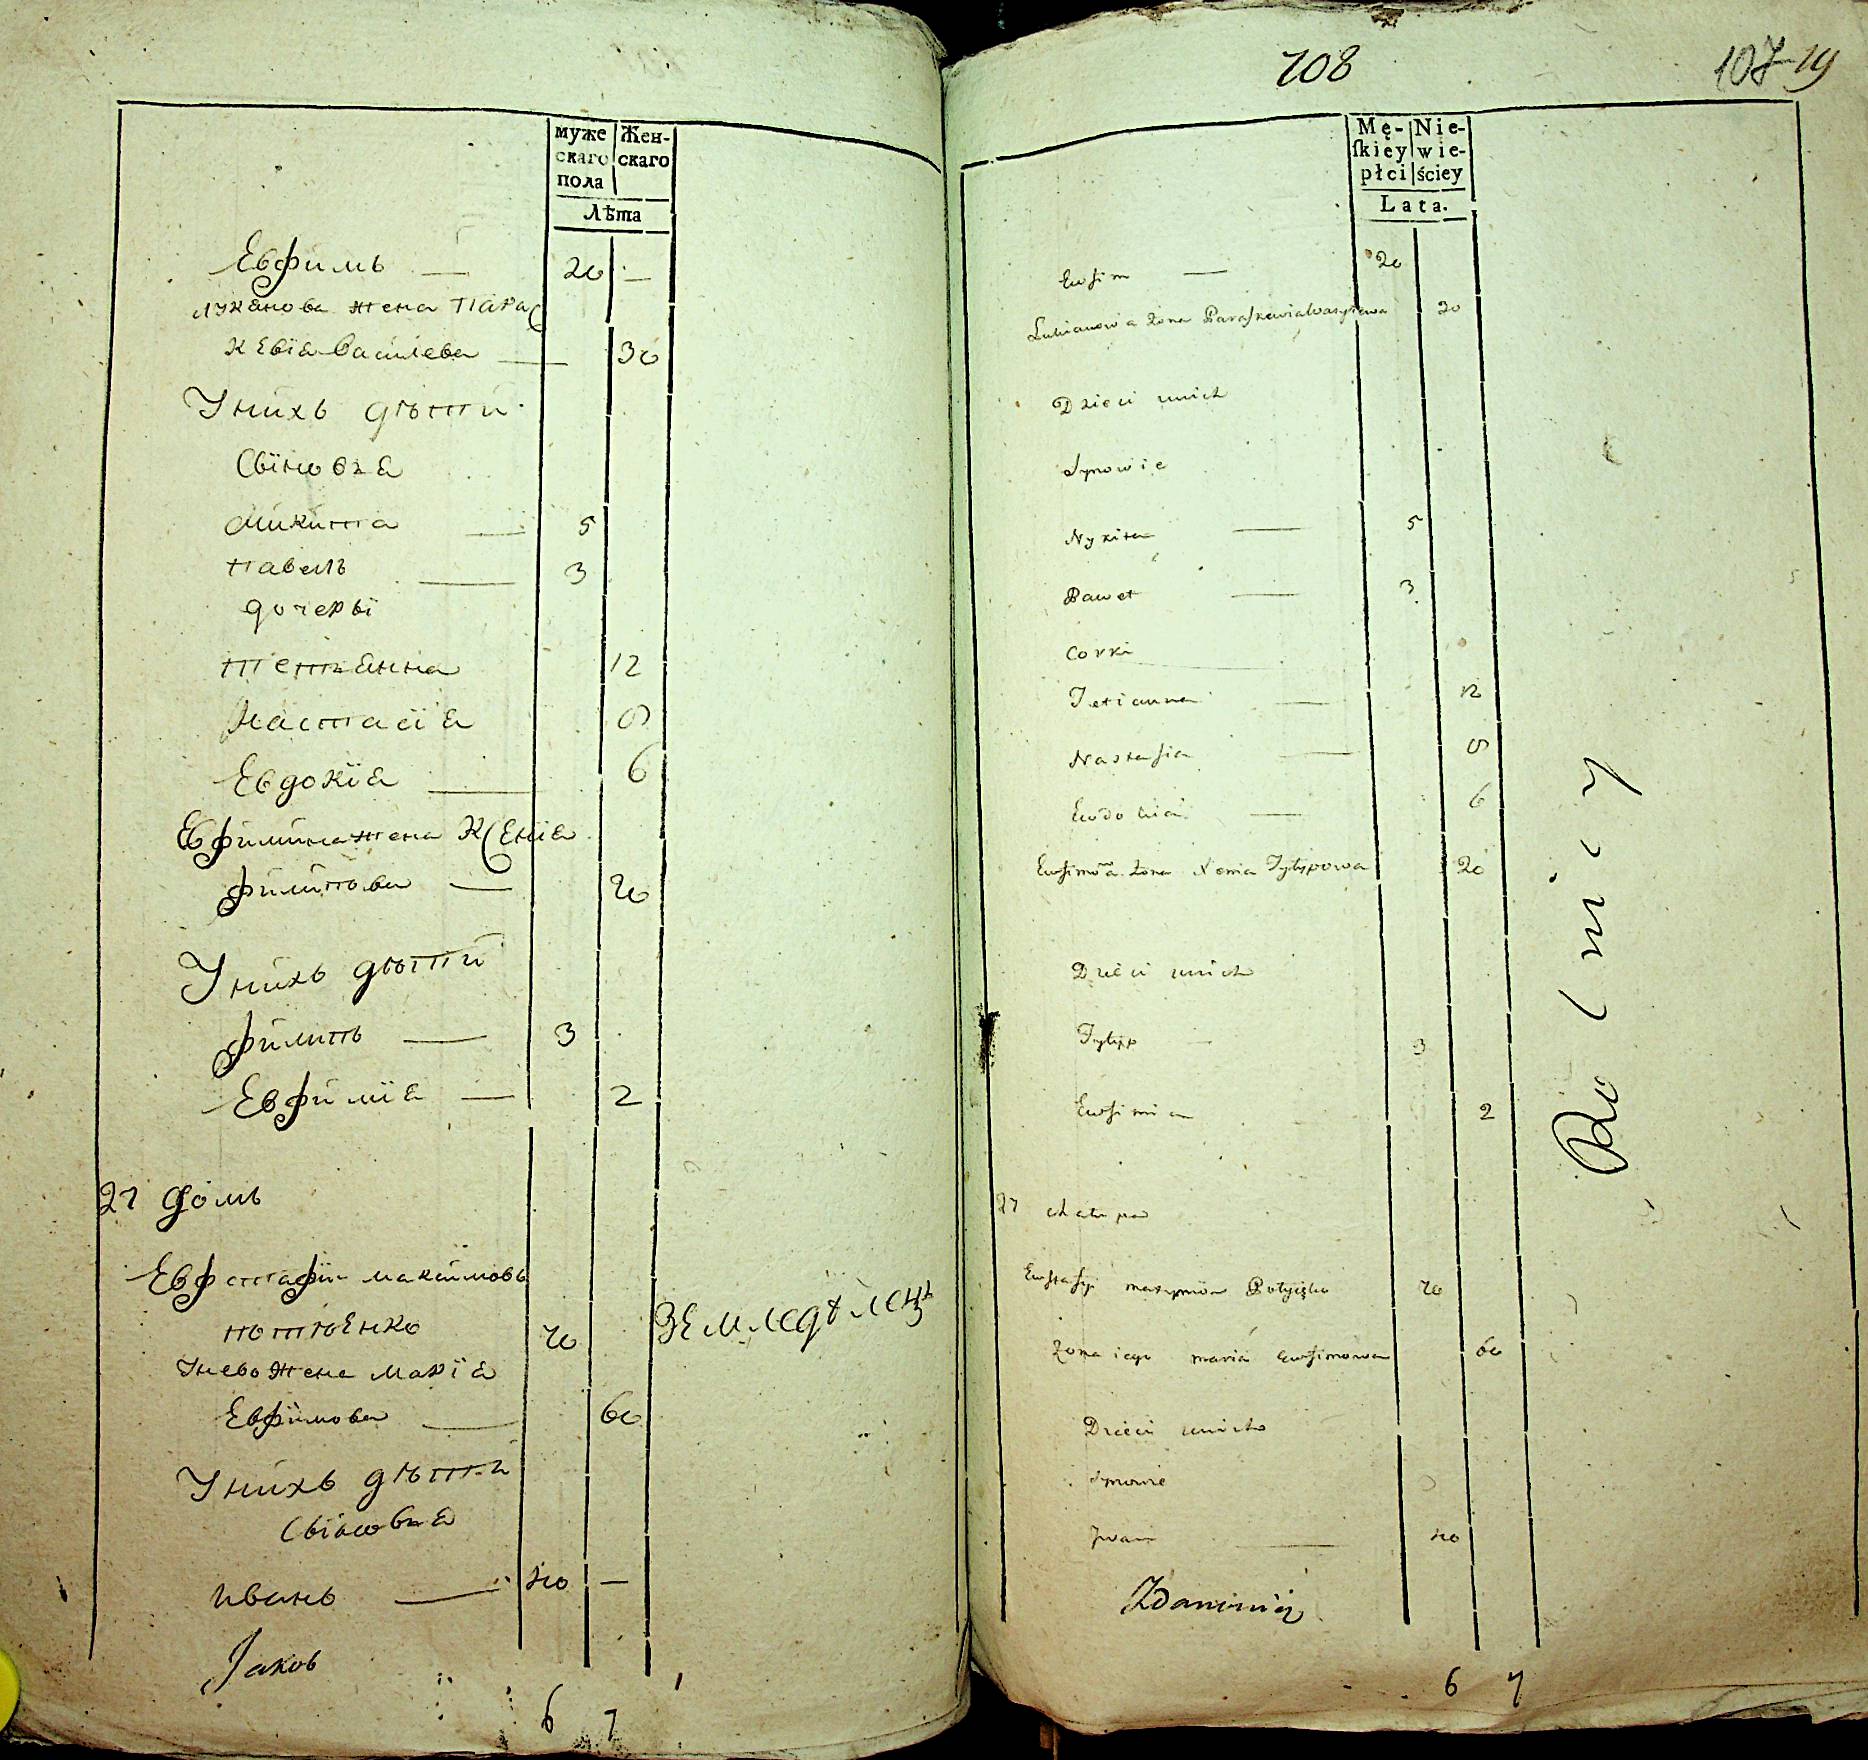 муже
скаго
пола
Жен-
скаго
Лѣта
Евфимъ — 20 —
Лукянова жена Парас
кевія Василева — 30
У нихъ дѣти
Сыновья
Микита — 5
Павелъ — 3
Дочеры
Тетянна 12
Настасія 9
Евдокія — 6
Евфимина жена Ксенія
Филипова — 20
У нихъ дѣти
Филипъ — 3
Евфимія — 2
27 домъ
Евфстафій Максимовъ
70 земледѣлецъ
У нево жена Марія
Евфимова — 60
У нихъ дѣти
Сыновья
Иванъ — 40 —
Jаков
6 7
708
107 19
Mę-
ſkiey
płci
Nie-
wie-
ściey
Lata.
Ewfim — 20
Lukianowa żona Paraskewia Wasylewa 30
Dzieci unich
Synowie
Nykita — 5
Paweł — 3
Corki
Tetianna — 12
Nastasia — 9
Ewdokia — 6
Ewfimowa żona Xenia Fylypowa 20
Dzieci unich
Fylypp — 3
Ewfimia 2
27 chałupa
Ewstafy Maxymow 70
Żona iego Maria Ewfimowa 60
Dzieci unich
Synowie
Jwan — 40
Rolnicy
6 7